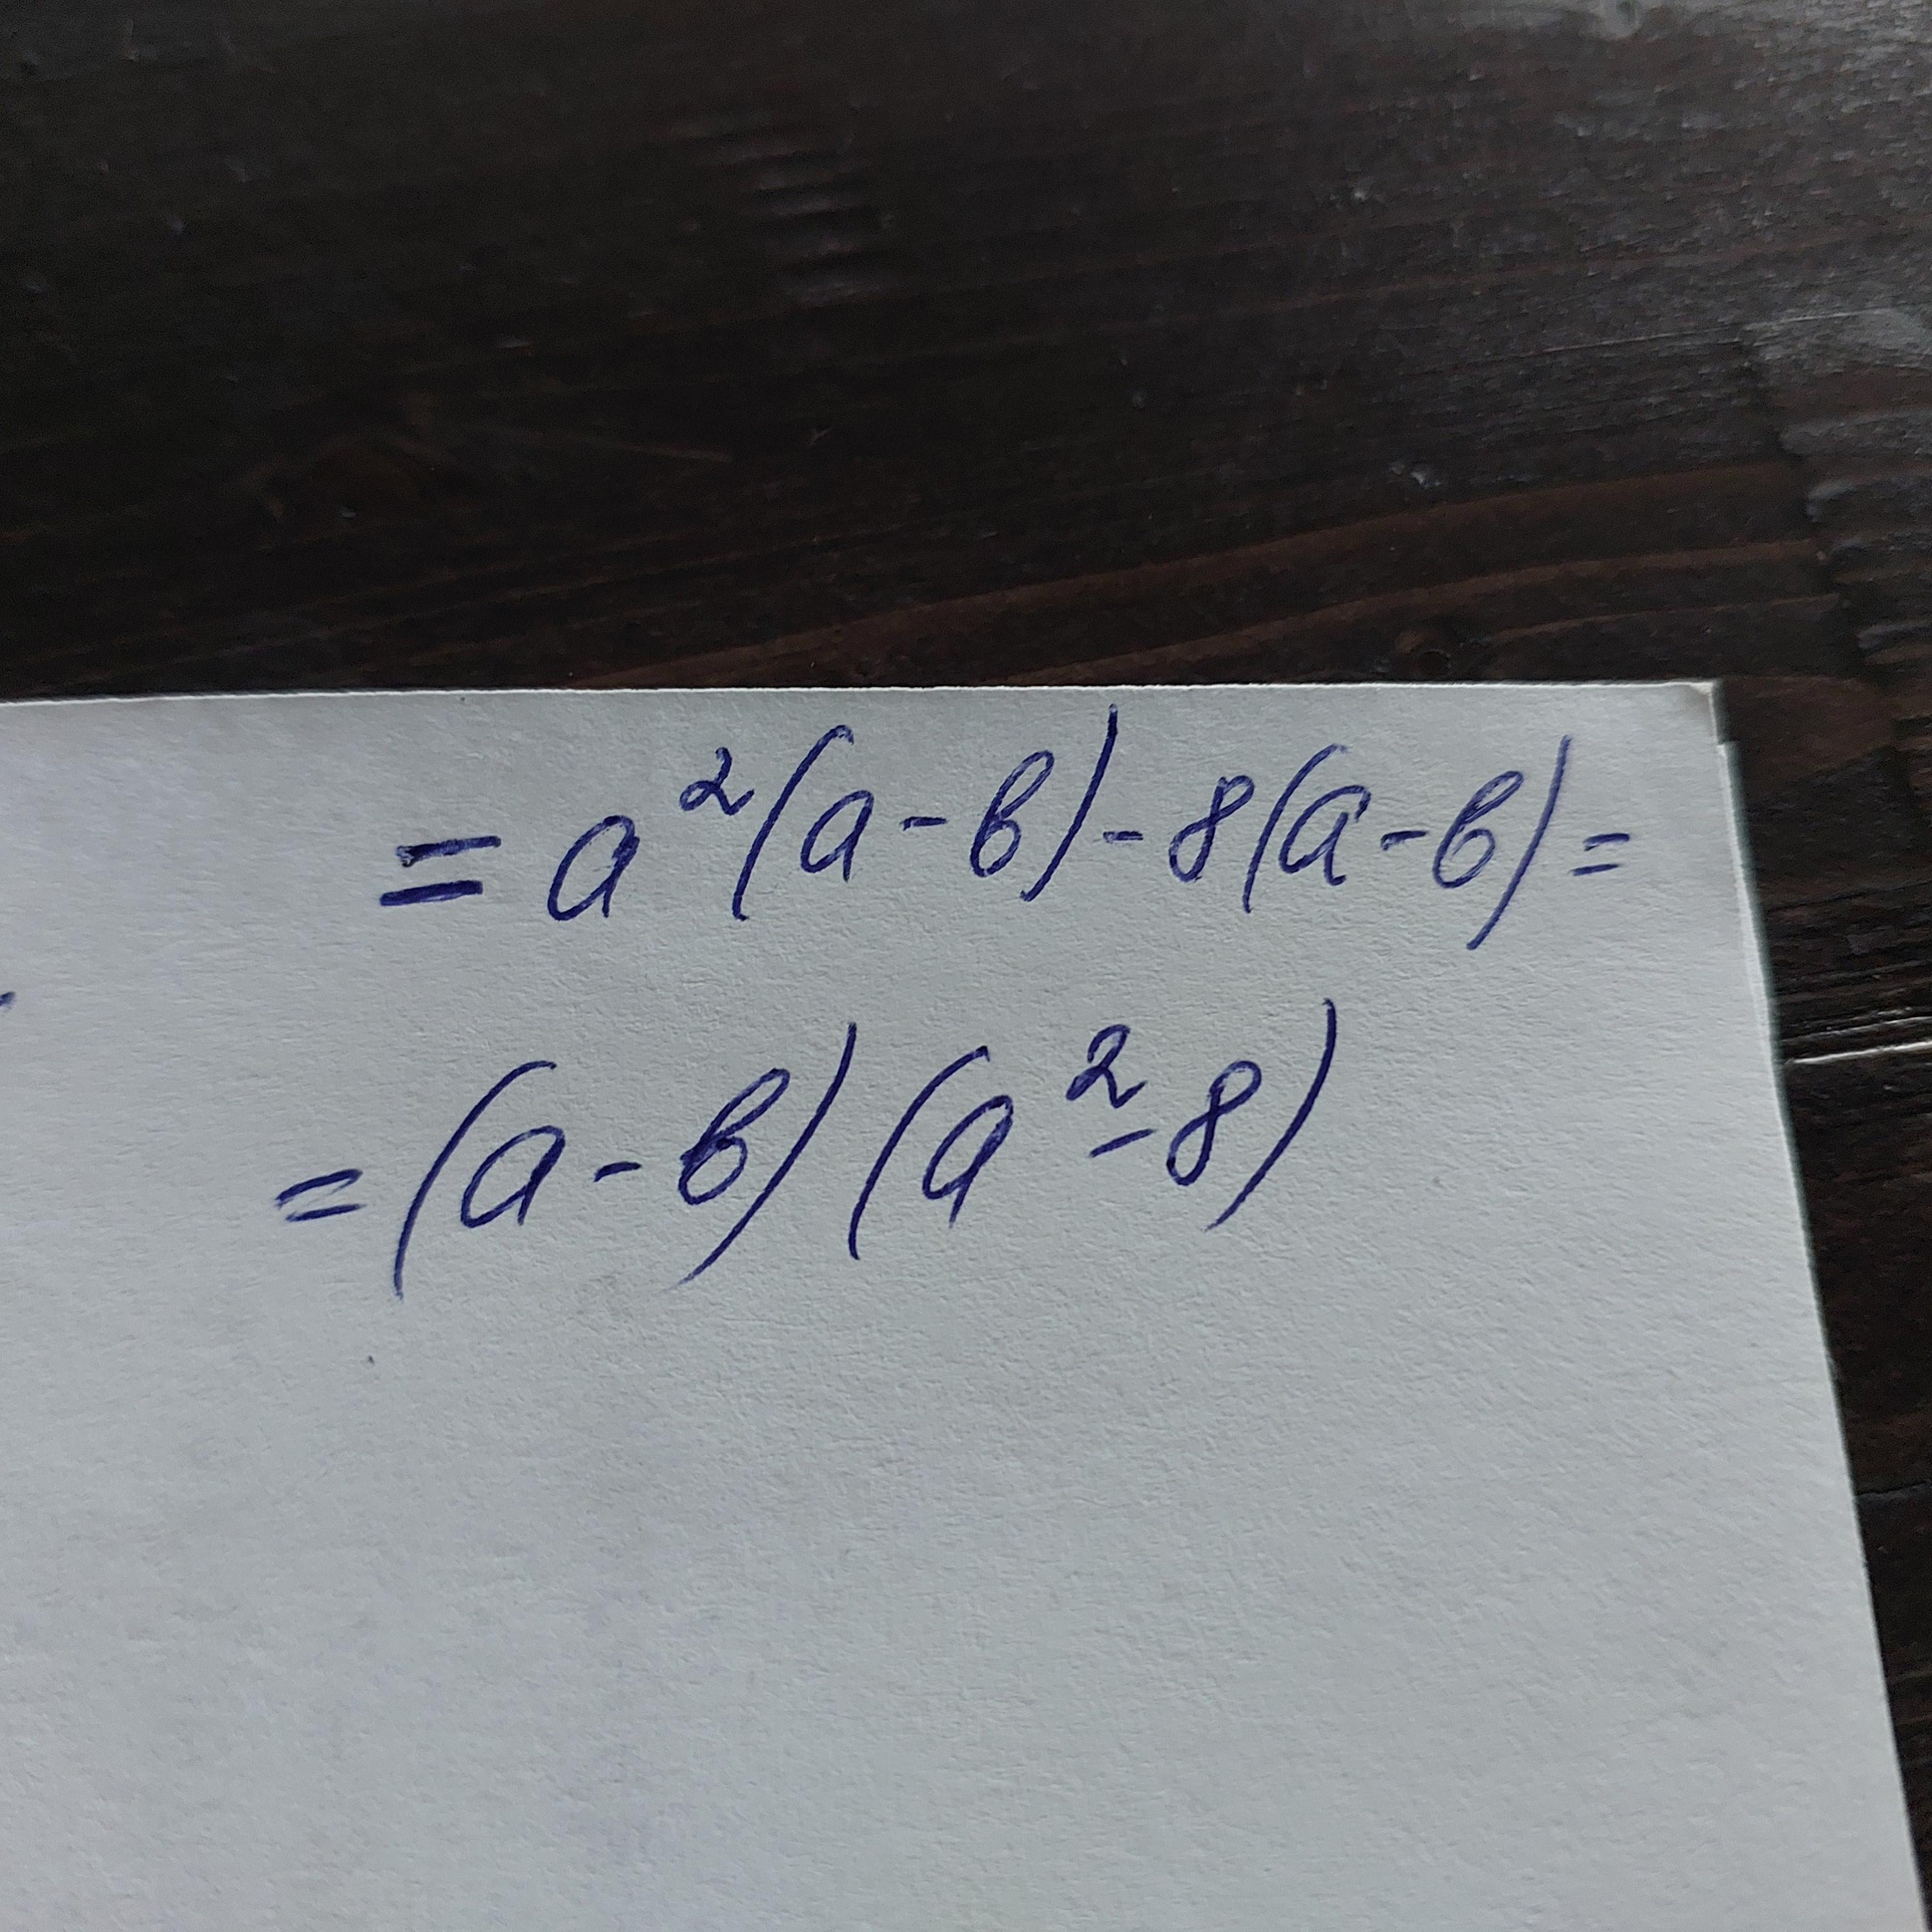 = a²(a - b) - 8(a - b) =
= (a - b)(a² - 8)